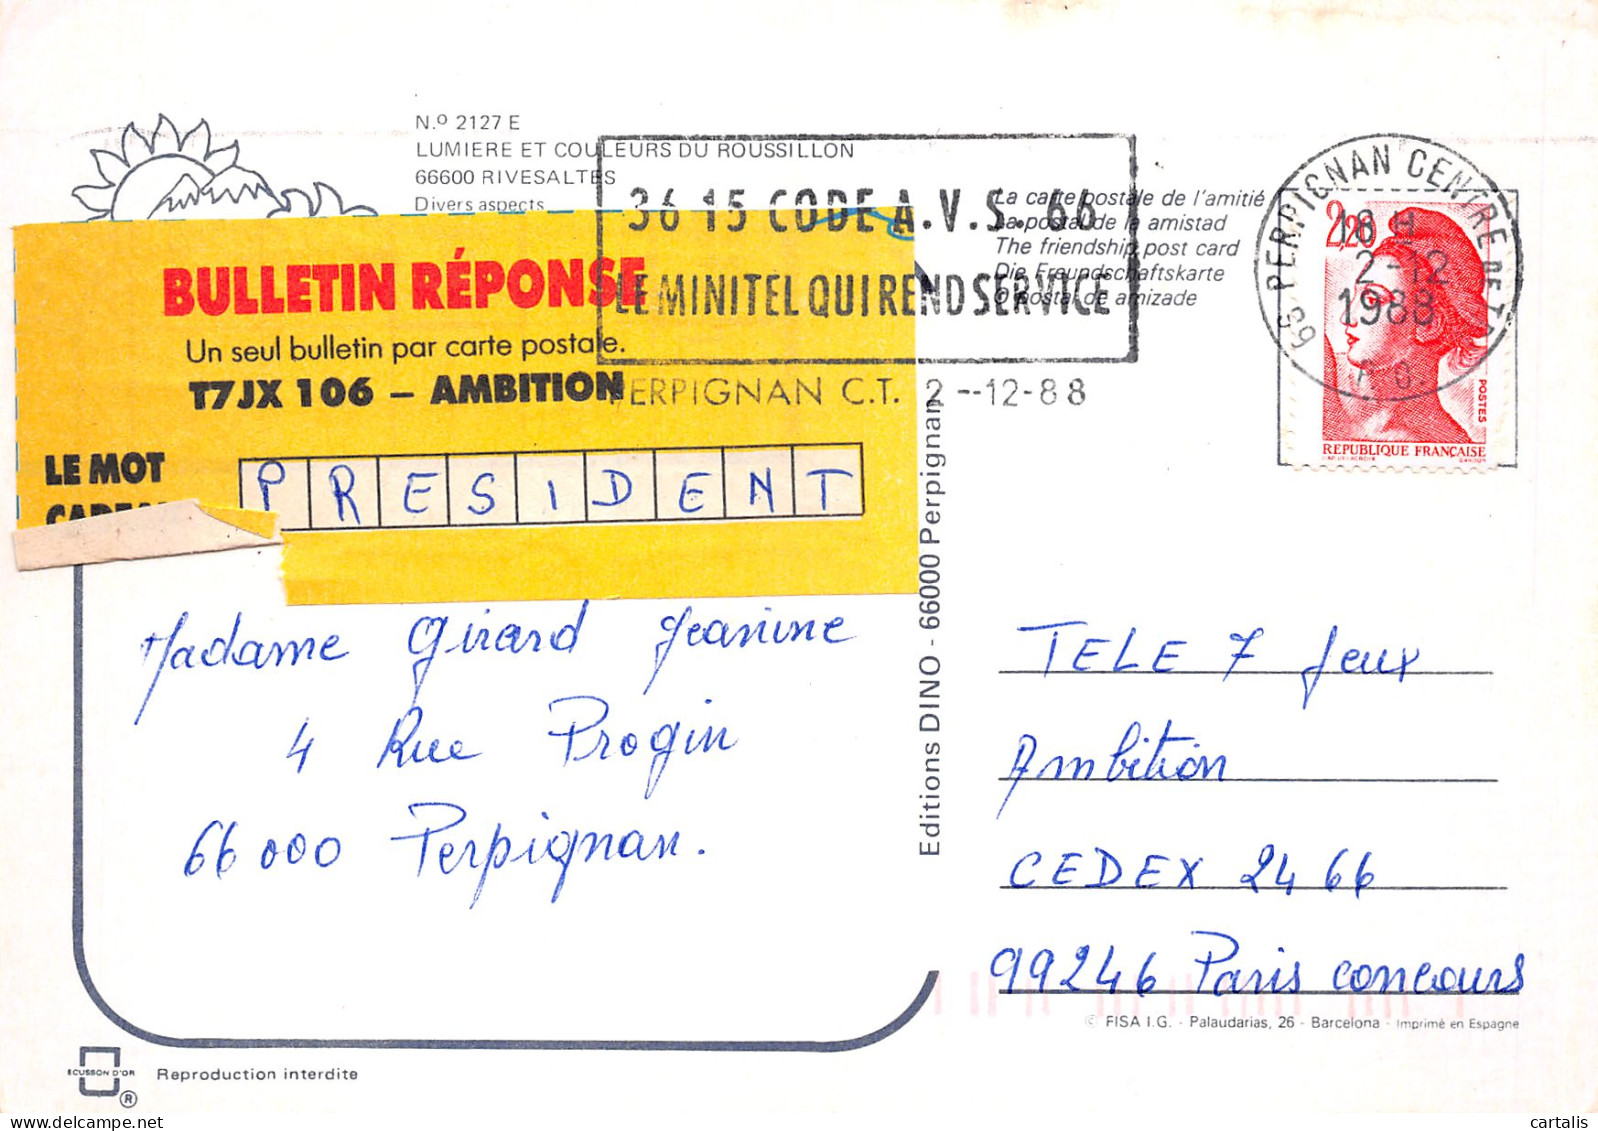 N.º 2127 E
LUMIERE ET COULEURS DU ROUSSILLON
66600 RIVESALTES
Divers aspects
BULLETIN RÉPONSE
Un seul bulletin par carte postale.
T7JX 106 – AMBITION
LE MOT
PRESIDENT
36 15 CODE A.V.S. 66
LE MINITEL QUI REND SERVICE
PERPIGNAN C.T. 2--12-88
La carte postale de l'amitié
La postal de la amistad
The friendship post card
Die Freundschaftskarte
O postal de amizade
66 PERPIGNAN CENTRE DE TRI
18 H
2-12
1988
P.O.
2,20
POSTES
REPUBLIQUE FRANÇAISE
Madame Girard Jeanine
4 Rue Progin
66000 Perpignan.
Editions DINO - 66000 Perpignan
TELE 7 Jeux
Ambition
CEDEX 2466
99246 Paris concours
© FISA I.G. - Palaudarias, 26 - Barcelona - Imprimé en Espagne
ECUSSON D'OR
®
Reproduction interdite
cartalis